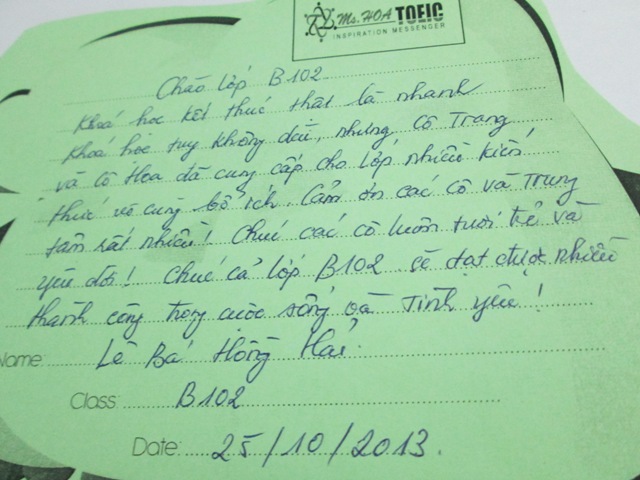 Ms. HOA TOEIC
INSPIRATION MESSENGER
Chào lớp B102
Khoá học kết thúc thật là nhanh
Khoá học tuy không dài, nhưng cô Trang
và cô Hoa đã cung cấp cho lớp nhiều kiến
thức vô cùng bổ ích. Cảm ơn các cô và Trung
tâm rất nhiều! Chúc các cô luôn tươi trẻ và
yêu đời! Chúc cả lớp B102 sẽ đạt được nhiều
thành công trong cuộc sống và tình yêu!
Name Lê Bá Hồng Hải.
Class: B102
Date: 25/10/2013.